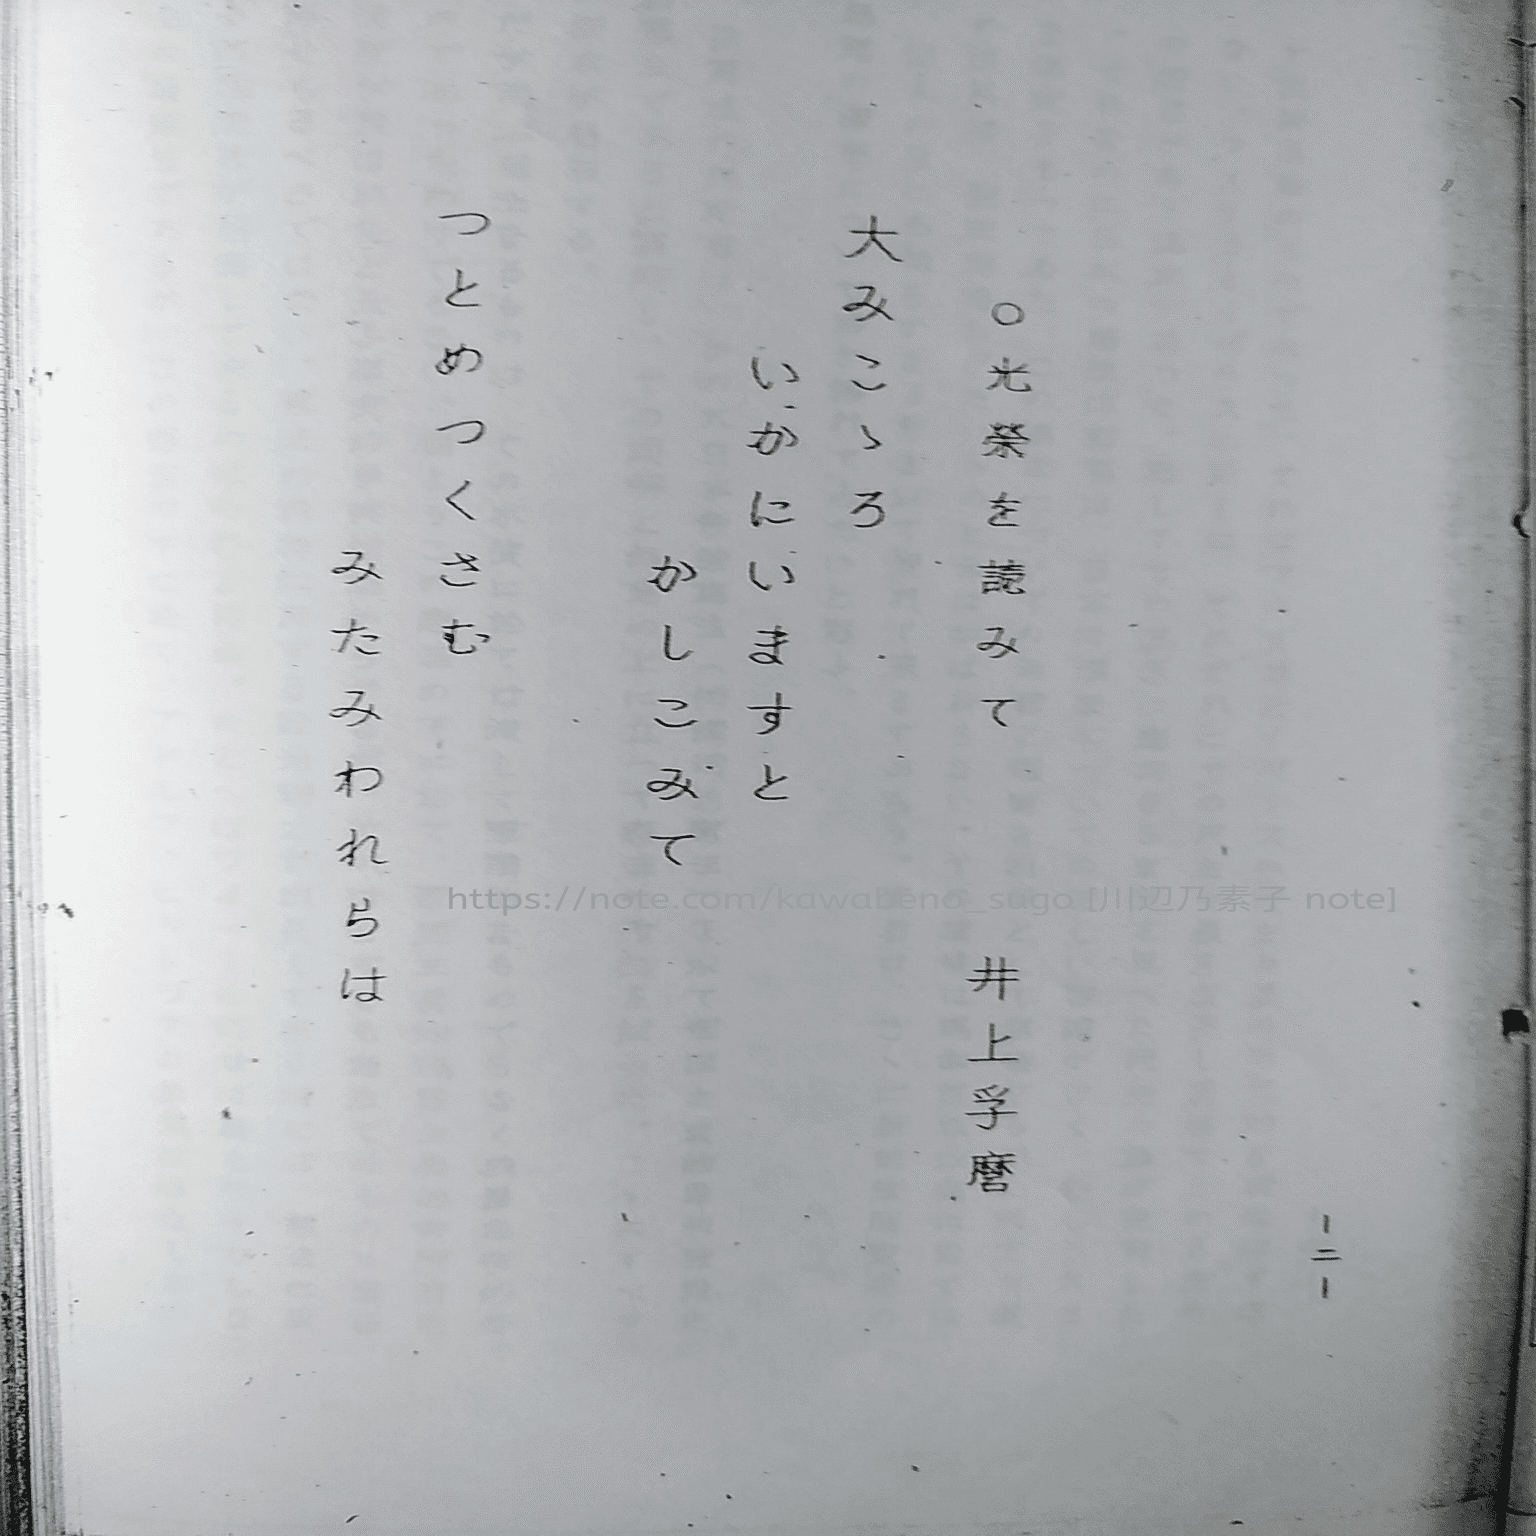 ○光榮を読みて　井上孚麿
大みこゝろ
いかにいますと
かしこみて
つとめつくさむ
みたみわれらは
ー二ー
https://note.com/kawabeno_sugo [川辺乃素子 note]